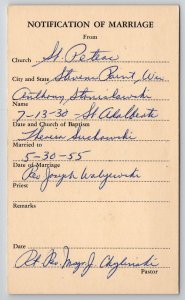 NOTIFICATION OF MARRIAGE
From
Church St Peters
City and State Stevens Point, Wis
Anthony Stanislawski
Name
7-13-30 St Adalberts
Date and Church of Baptism
Theresa Suchowski
Married to
5-30-55
Date of Marriage
Rev Joseph Walijewski
Priest
Remarks
Date
Rt Rev Msgr J.
Pastor